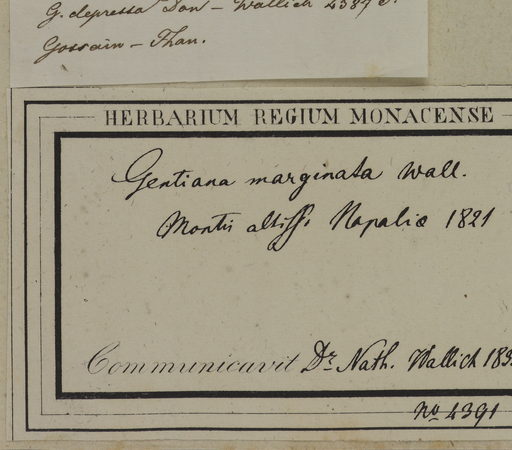 G. depressa Don - Wallich 4387
Gossain - Than.
HERBARIUM REGIUM MONACENSE
Gentiana marginata Wall.
Montis altiss. Napaliæ 1821
Communicavit Dr. Nath. Wallich 183
No 4391